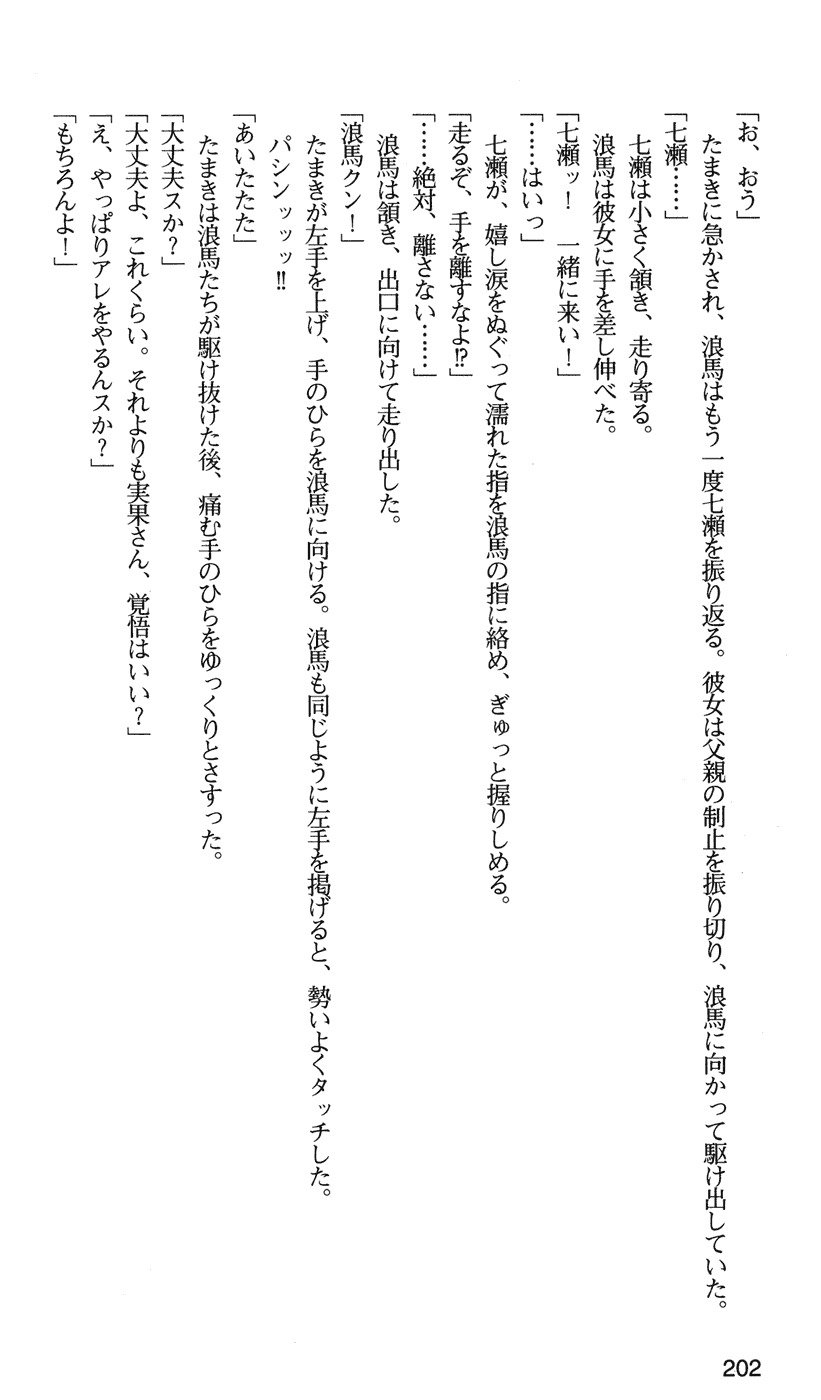 「お、おう」
　たまきに急かされ、浪馬はもう一度七瀬を振り返る。彼女は父親の制止を振り切り、浪馬に向かって駆け出していた。
「七瀬……」
　七瀬は小さく頷き、走り寄る。
　浪馬は彼女に手を差し伸べた。
「七瀬ッ！　一緒に来い！」
「……はいっ」
　七瀬が、嬉し涙をぬぐって濡れた指を浪馬の指に絡め、ぎゅっと握りしめる。
「走るぞ、手を離すなよ!?」
「……絶対、離さない……」
　浪馬は頷き、出口に向けて走り出した。
「浪馬クン！」
　たまきが左手を上げ、手のひらを浪馬に向ける。浪馬も同じように左手を掲げると、勢いよくタッチした。
　パシンッッッ!!
「あいたたた」
　たまきは浪馬たちが駆け抜けた後、痛む手のひらをゆっくりとさすった。
「大丈夫スか？」
「大丈夫よ、これくらい。それよりも実果さん、覚悟はいい？」
「え、やっぱりアレをやるんスか？」
「もちろんよ！」
202